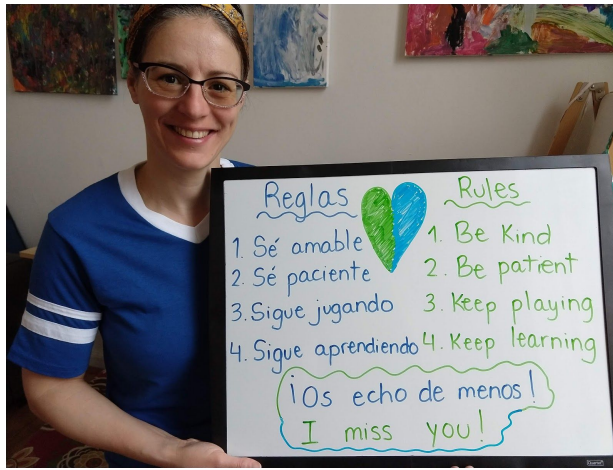 Reglas
1. Sé amable
2. Sé paciente
3. Sigue jugando
4. Sigue aprendiendo
Rules
1. Be Kind
2. Be patient
3. Keep playing
4. Keep learning
¡Os echo de menos!
I miss you!